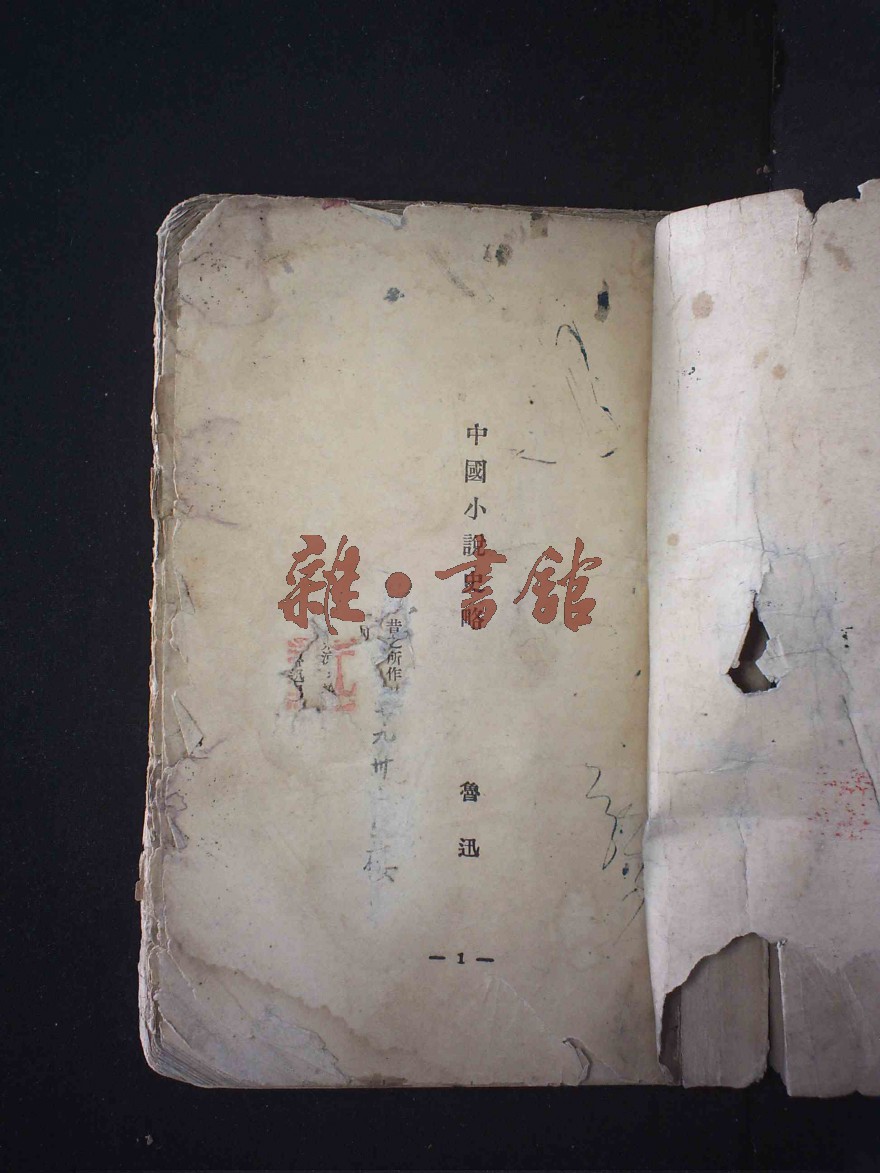 中國小說史略
魯迅
昔之所作
九卅
— 1 —
雜·書館